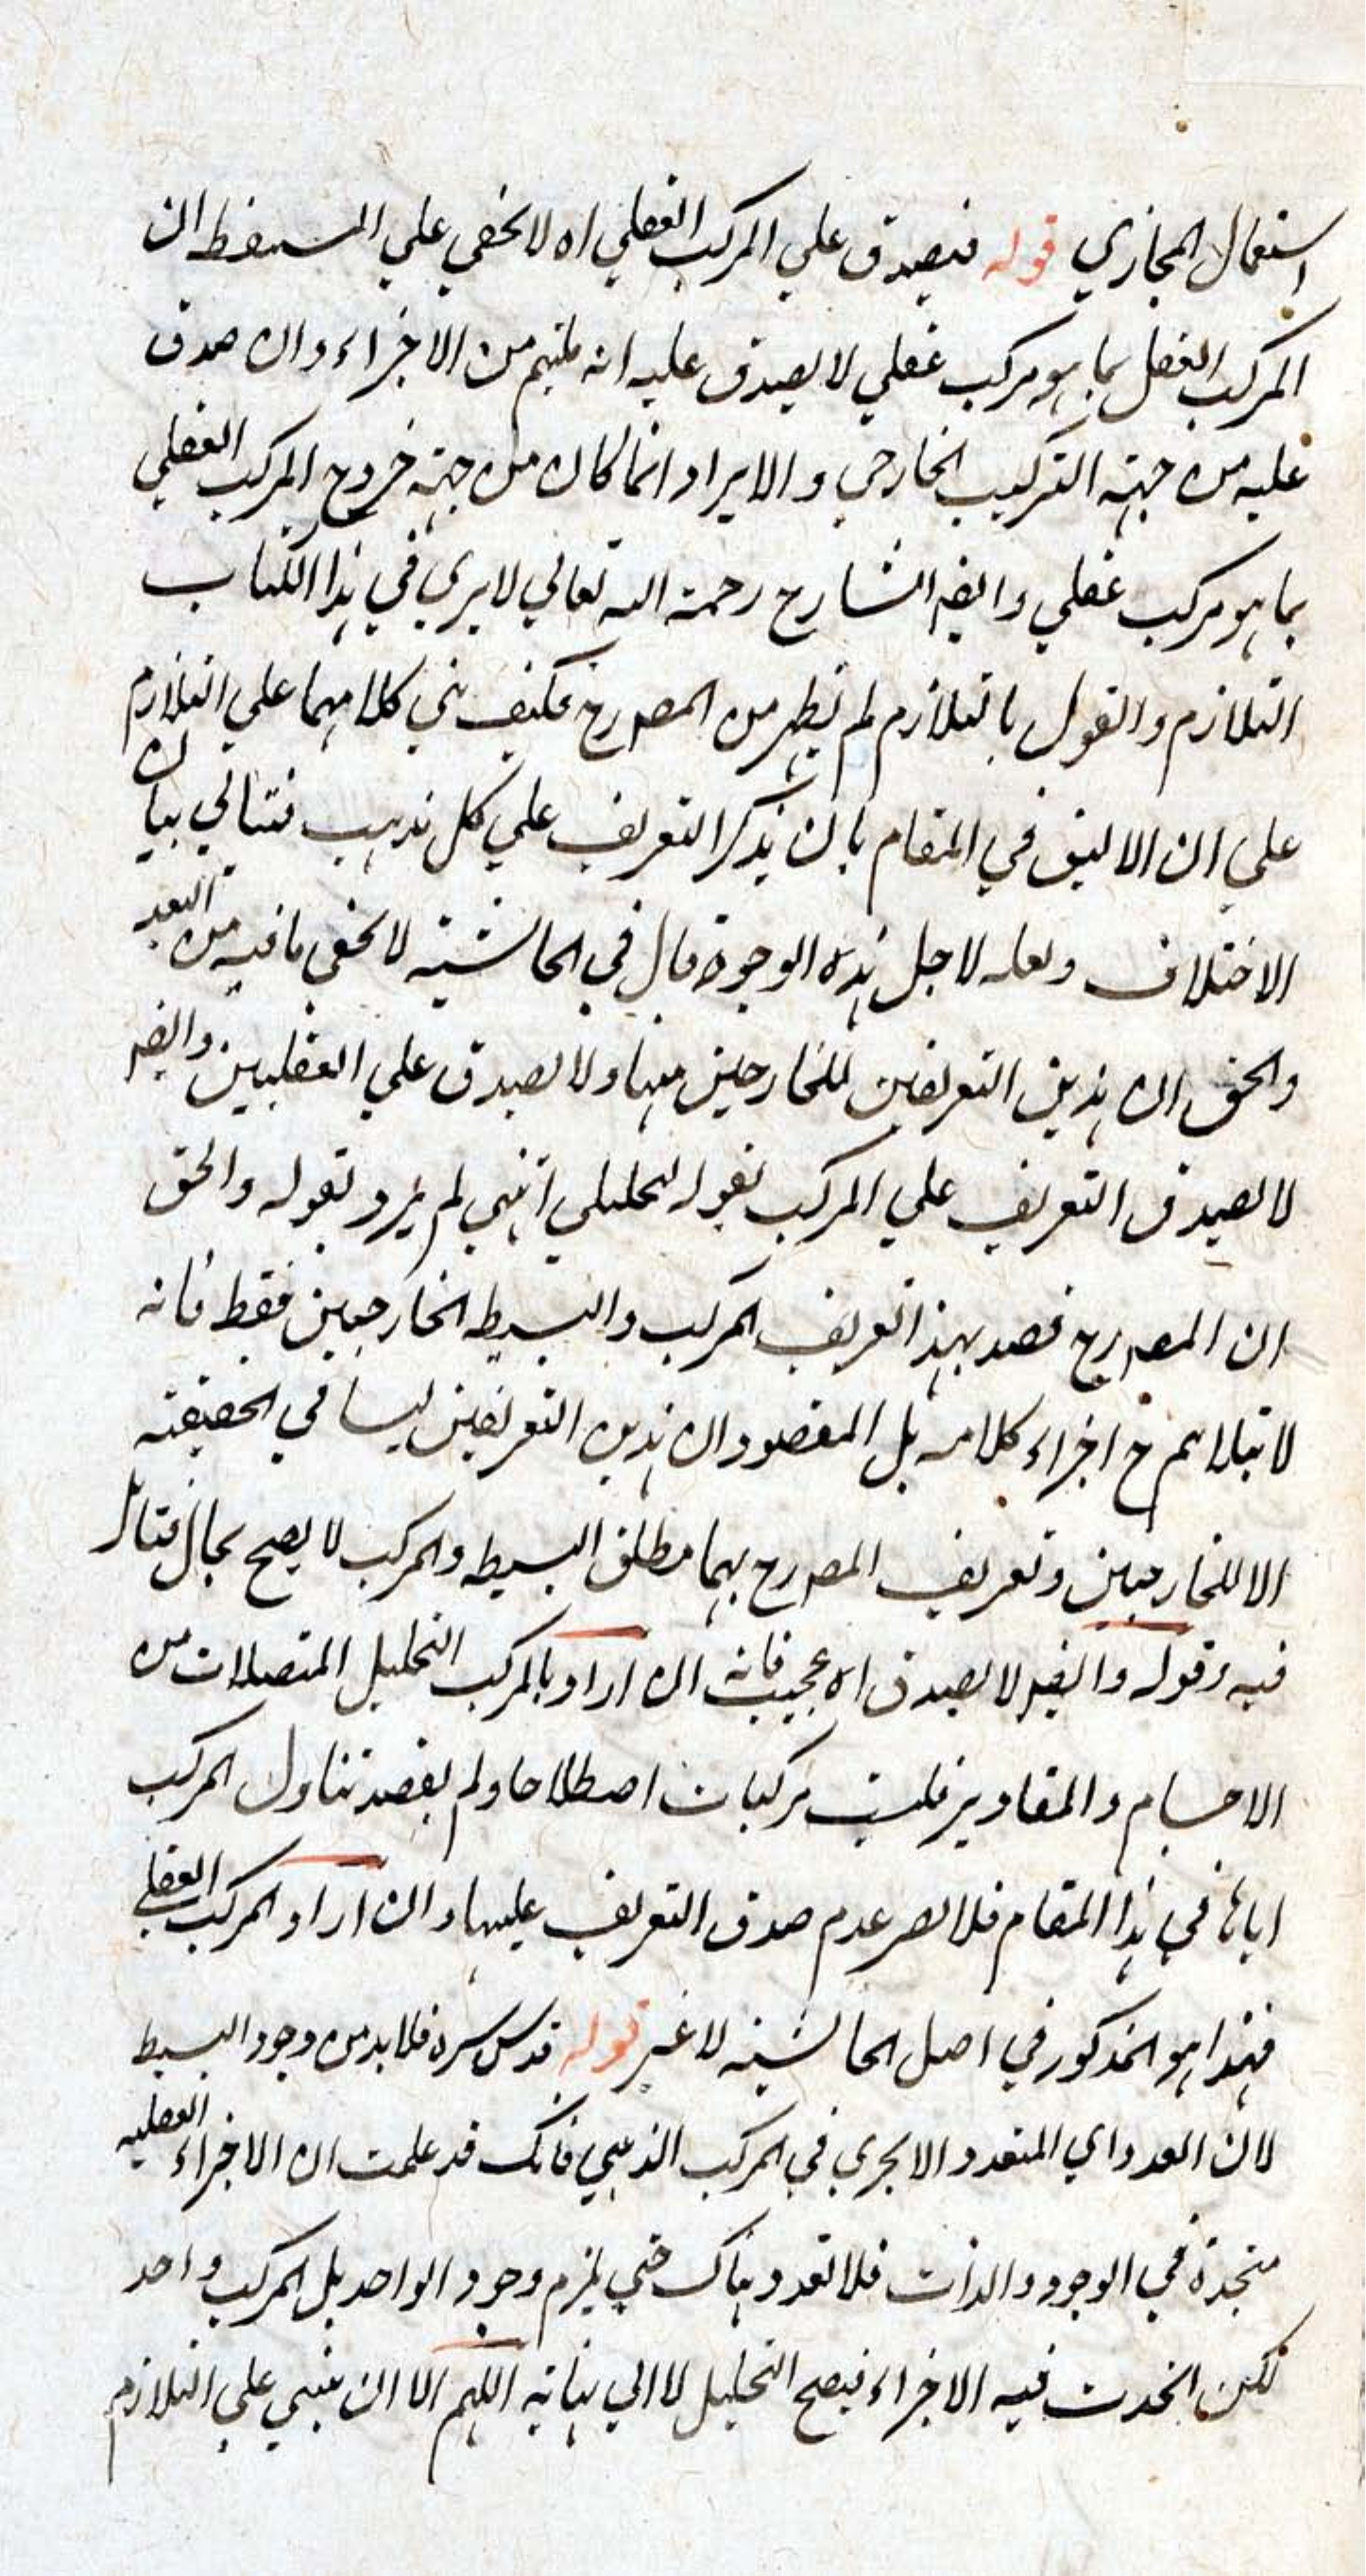 استعمال المجازي قوله فيصدق علي المركب العقلي اه لا يخفي علي المستيقظ ان
المركب العقلي بما هو مركب عقلي لا يصدق عليه انه ملتئم من الاجزاء وان صدق
عليه من جهة التركيب الخارجي والايراد انما كان من جهة خروج المركب العقلي
بما هو مركب عقلي وايضا الشارح رحمة الله تعالي لا يري في هذا الكتاب
التلازم والقول بالتلازم لم يظهر من المصررح فكيف بني كلامهما علي التلازم
علي ان الاليق في المقام بان يذكر التعريف علي كل مذهب فتتالي بيان
الاختلاف ولعله لاجل هذه الوجوه قال في الحاشية لا يخفي ما فيه من البعد
والحق ان هذين التعريفين للخارجين منها ولا يصدق علي العقليين وايضا
لا يصدق التعريف علي المركب بقوله التحليلي انتهي لم يرد بقوله والحق
ان المصررح قصد بهذا تعريف المركب والبسيط الخارجيين فقط فانه
لا اجزاء كلامه بل المقصود ان هذين التعريفين ليسا في الحقيقة
الا للخارجيين وتعريف المصررح بهما مطلق البسيط والمركب لا يصح بحال فتامل
فيه وقوله وايضا لا يصدق اه عجيب فانه ان اراد بالمركب التحليل المتصلات من
الاجسام والمقادير فليست مركبات اصطلاحا ولم يقصد تناول المركب
اياها في هذا المقام فلا يضر عدم صدق التعريف عليها وان اراد المركب العقلي
فهذا هو المذكور في اصل الحاشية لا غير قوله قدس سره فلا بد من وجود البسيط
لان العدد اي المتعدد لا يجري في المركب الذهني فانك قد علمت ان الاجزاء العقلية
متحدة في الوجود والذات فلا تعدد هناك حتي يلزم وجود الواحد بل المركب واحد
لكن اتحدت فيه الاجزاء فيصح التحليل لا الي نهاية اللهم الا ان يبني علي التلازم